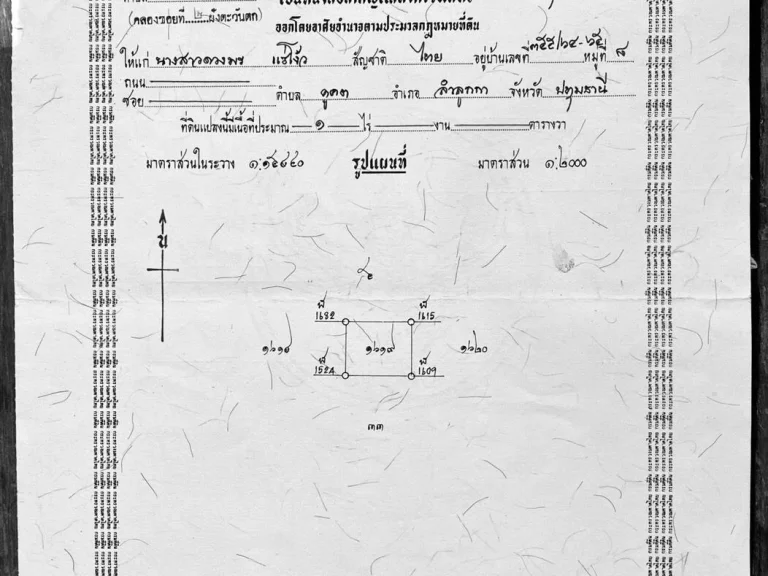 (คลองซอยที่ ๒ ฝั่งตะวันตก)
ออกโดยอาศัยอำนาจตามประมวลกฎหมายที่ดิน
ให้แก่ นางสาวดวงพร แซ่โง้ว สัญชาติ ไทย อยู่บ้านเลขที่ ๓๕๕/๖๔-๖๕ หมู่ที่ ๘
ถนน
ซอย ตำบล คูคต อำเภอ ลำลูกกา จังหวัด ปทุมธานี
ที่ดินแปลงนี้มีเนื้อที่ประมาณ ๑ ไร่ งาน ตารางวา
มาตราส่วนในระวาง ๑: รูปแผนที่ มาตราส่วน ๑:๒๐๐๐
น
1682 1615
๑๖๑๘ ๑๖๑๙ ๑๖๒๐
1524 1609
๓๓